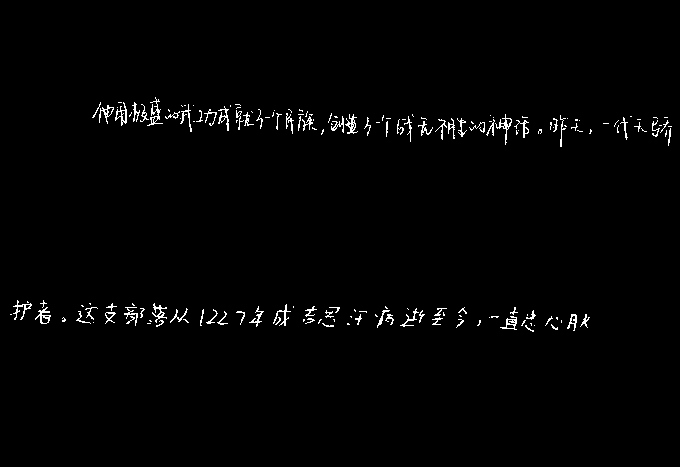 他用极盛的武功成就了一个民族，创造了一个战无不胜的神话。昨天，一代天骄
护者。这支部落从1227年成吉思汗病逝至今，一直忠心耿